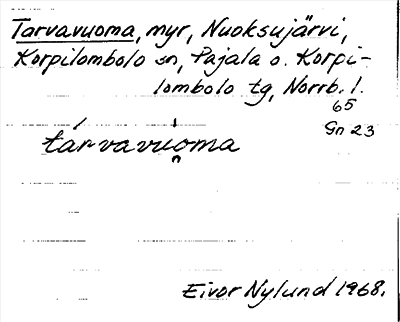 Tarvavuoma, myr, Nuoksujärvi,
Korpilombolo sn, Pajala o. Korpi-
lombolo tg, Norrb. l.
65
Gn 23
tárvavùo̭ma
Eivor Nylund 1968.